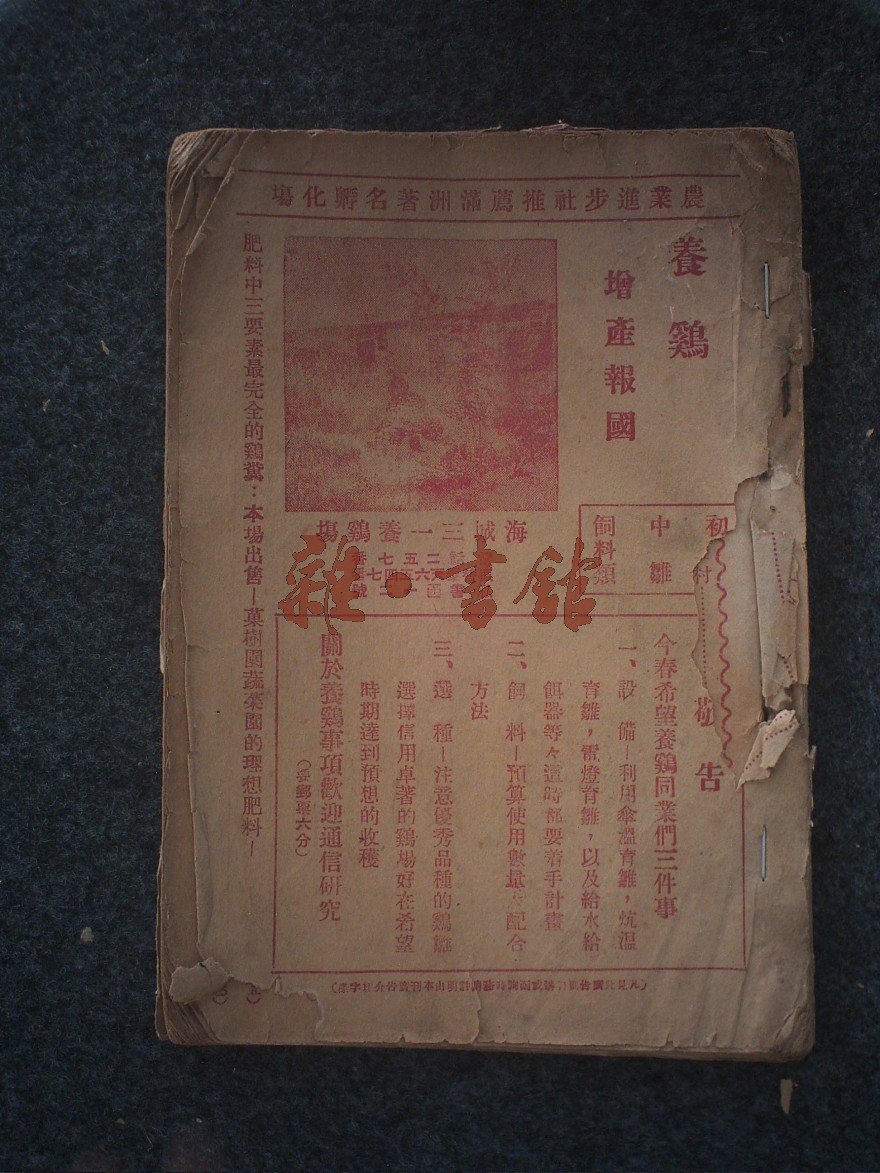 農業進步社推薦滿洲著名孵化場
養鷄
增產報國
初
中雛
飼料類
海城三一養鷄場
敬告
今春希望養鷄同業們三件事
一、設備—利用傘溫育雛，炕溫
育雛，電燈育雛，以及給水給
餌器等々這時都要着手計畫
二、飼料—預算使用數量 配合
方法
三、選種—注意優秀品種的鷄雛
選擇信用卓著的鷄場好在希望
時期達到預想的收穫
關於養鷄事項歡迎通信研究
(要郵票六分)
肥料中三要素最完全的鷄糞：本場出售—菓樹園蔬菜園的理想肥料—
雜·書館